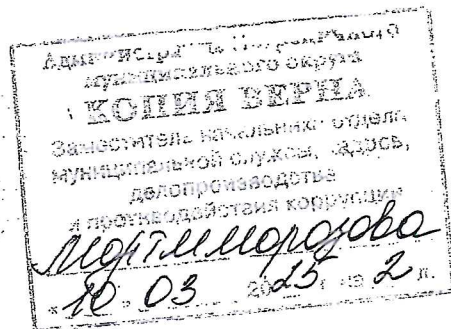 муниципального округа
КОПИЯ ВЕРНА
Заместитель начальника отдела
муниципальной службы, кадров,
делопроизводства
и противодействия коррупции
" 10 " 03 2025 г на 2 л.